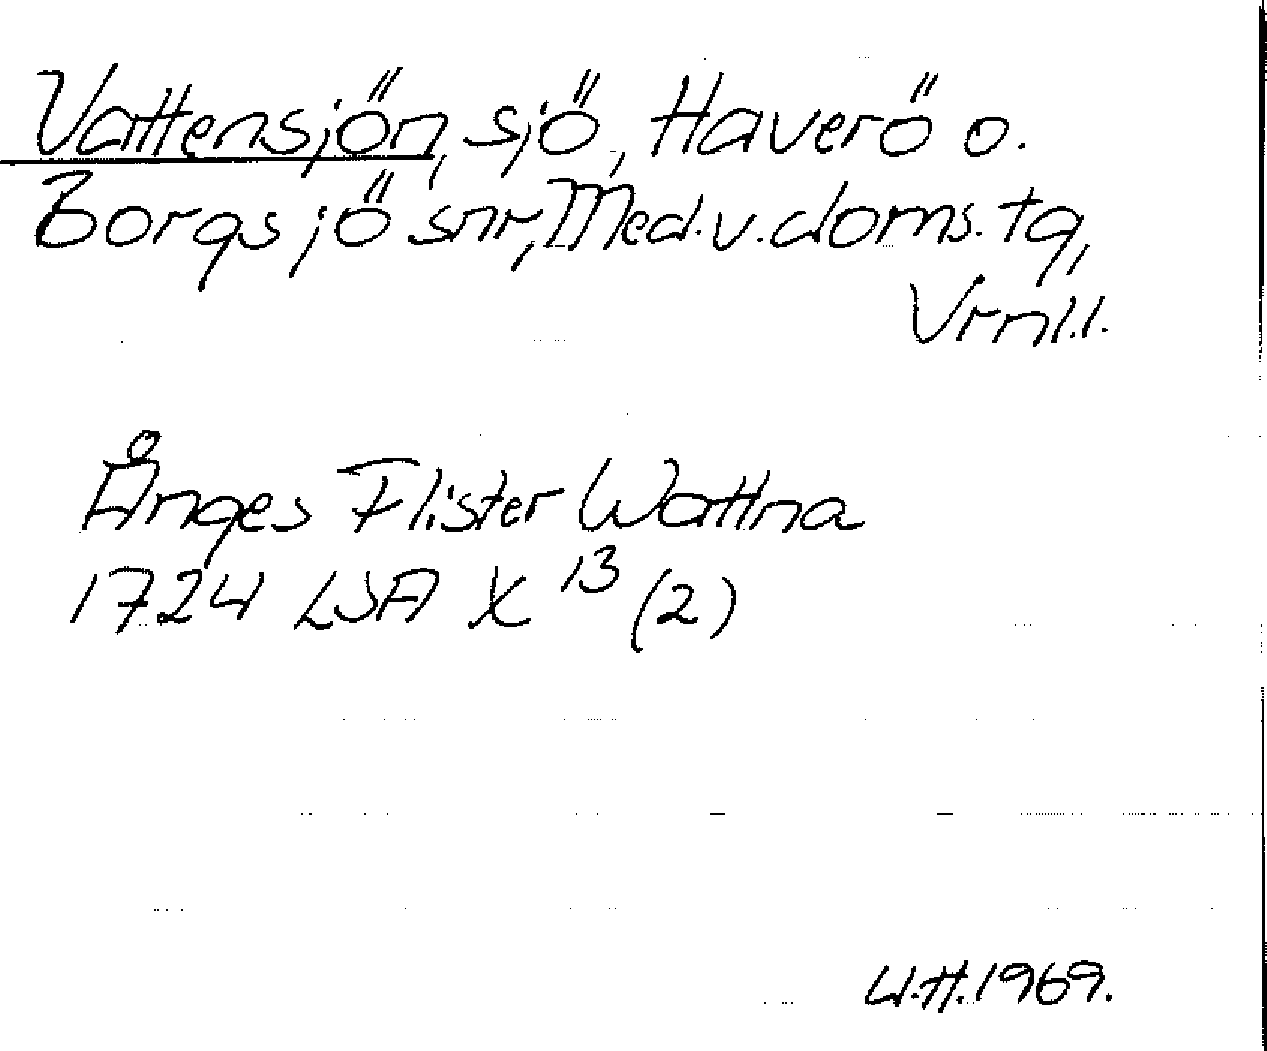 Vattensjön, sjö, Haverö o.
Borgsjö snr, Med.v.doms.tg,
Vrnl.l.
Ånges Flister Wattna
1724 LSA X 13 (2)
U.H.1969.